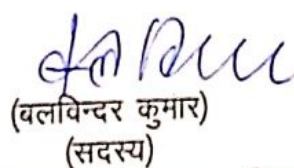 (बलविन्दर कुमार)
(सदस्य)